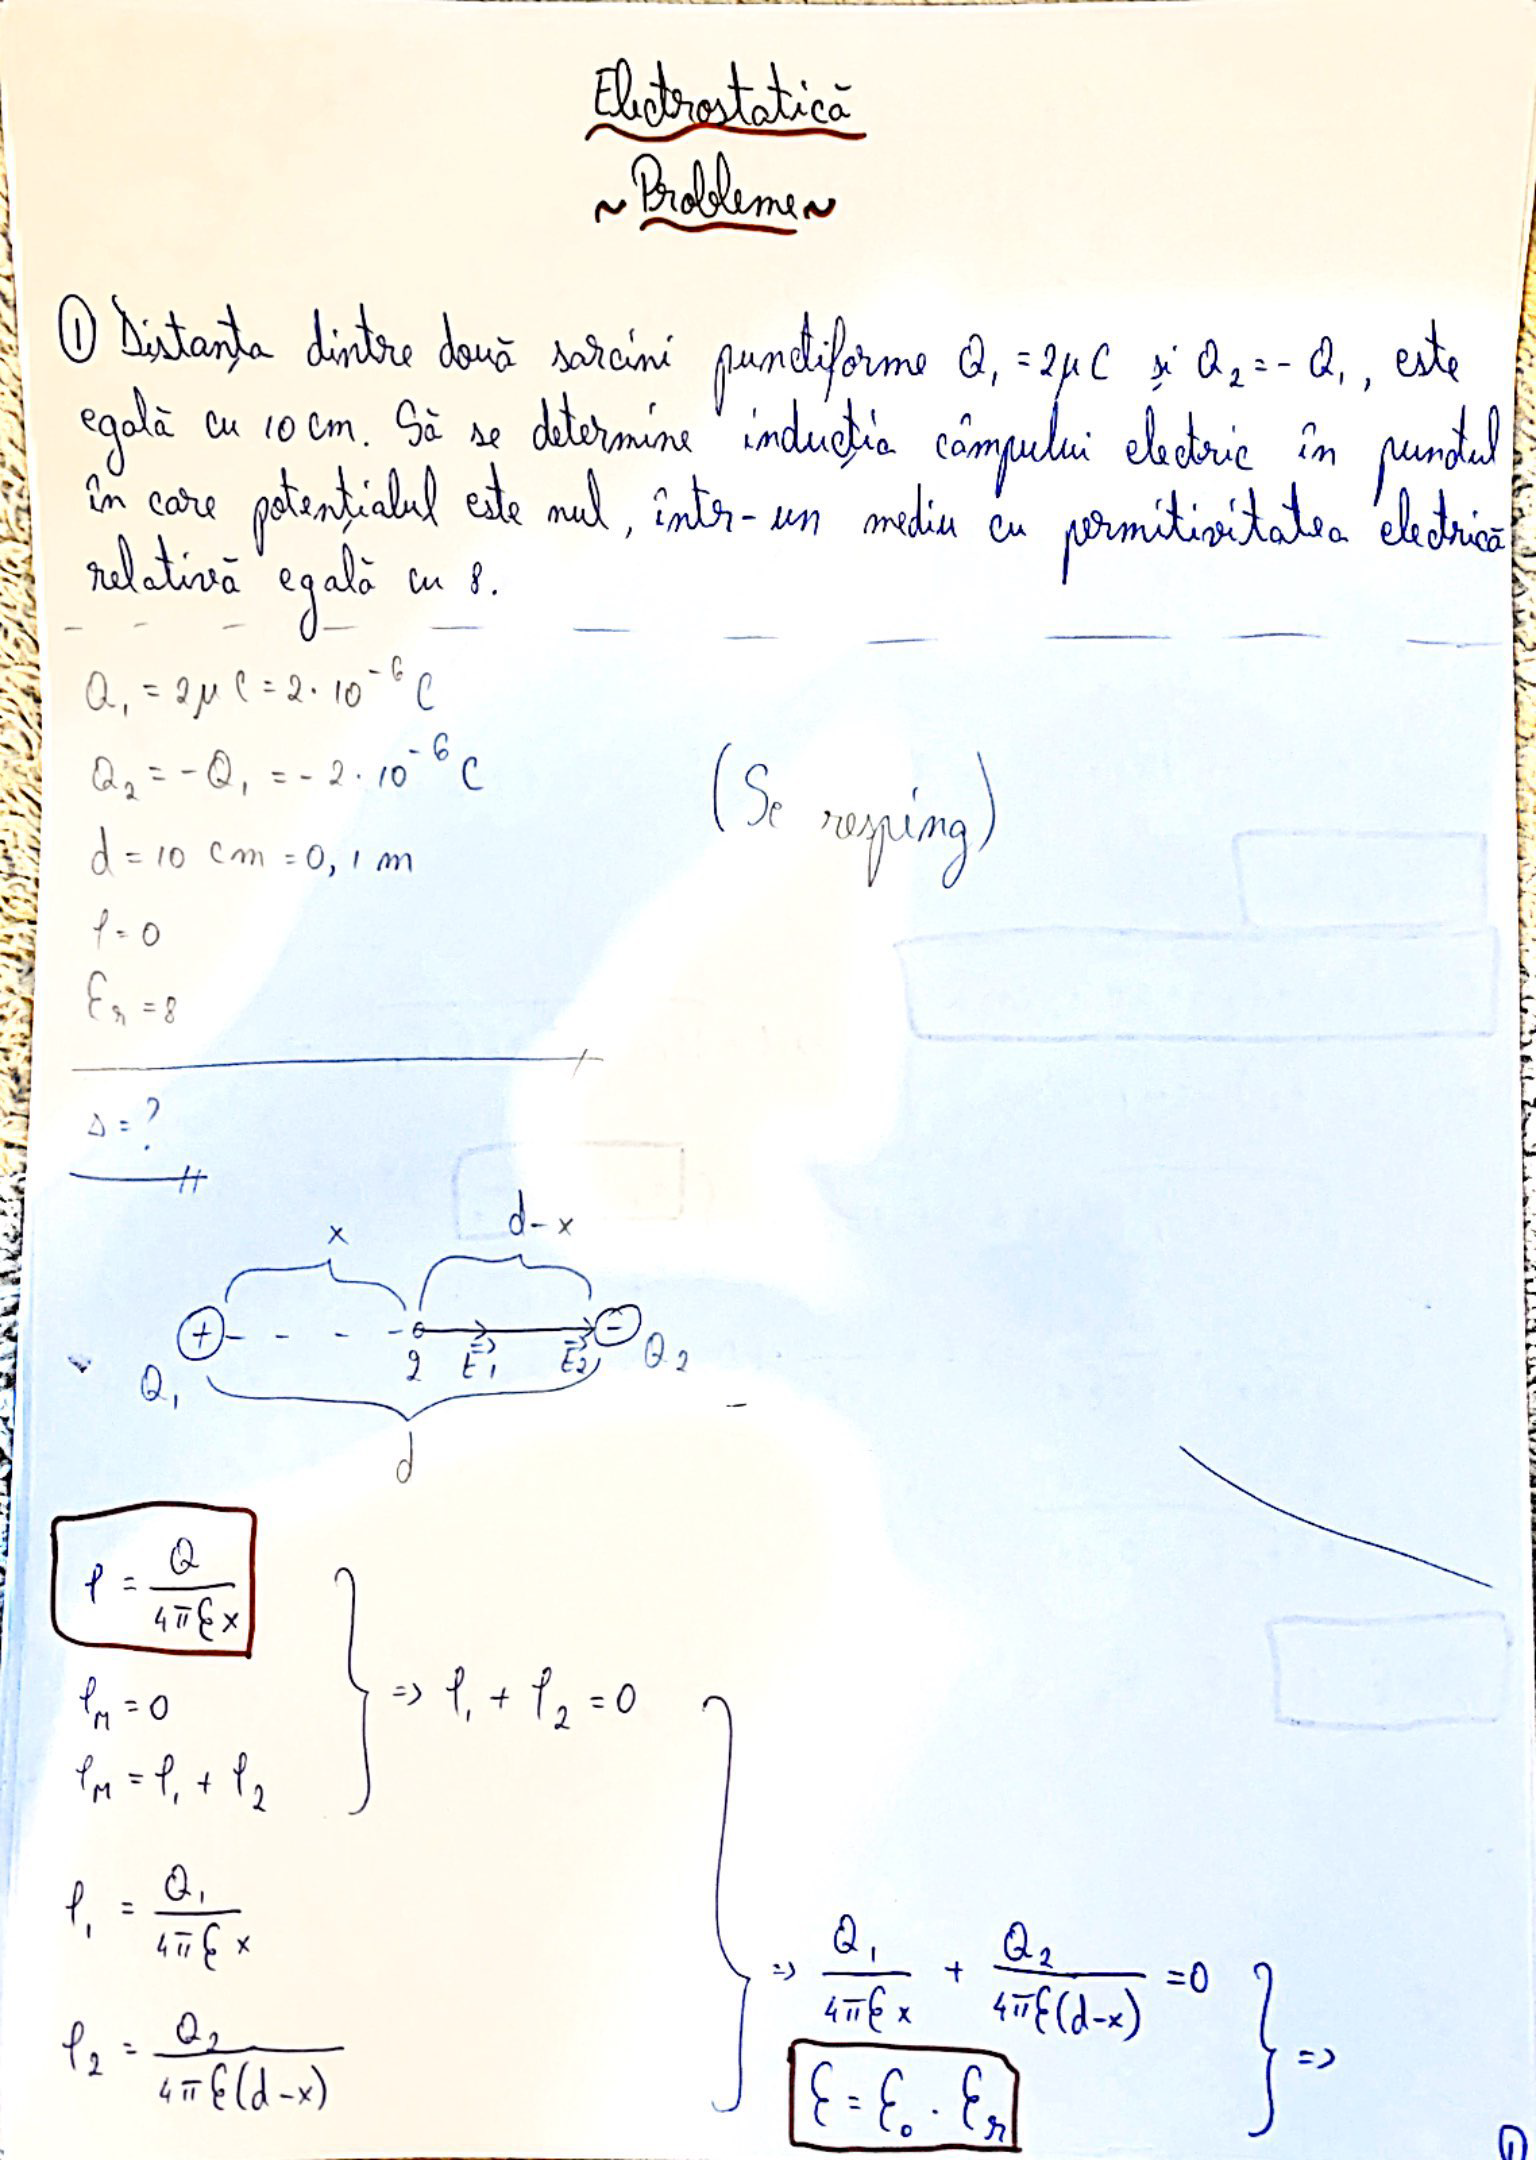 Electrostatică
~ Probleme ~
① Distanța dintre două sarcini punctiforme Q₁ = 2μC și Q₂ = - Q₁, este
egală cu 10 cm. Să se determine inducția câmpului electric în punctul
în care potențialul este nul, într-un mediu cu permitivitatea electrică
relativă egală cu 8.
Q₁ = 2μC = 2·10⁻⁶ C
Q₂ = -Q₁ = -2·10⁻⁶ C
(Se resping)
d = 10 cm = 0,1 m
φ = 0
εᵣ = 8
Δ = ?
x d-x
+ q E⃗₁ E⃗₂ -
Q₁ Q₂
d
φ = Q / 4πεx
φ_M = 0
=> φ₁ + φ₂ = 0
φ_M = φ₁ + φ₂
φ₁ = Q₁ / 4πεx
=> Q₁ / 4πεx + Q₂ / 4πε(d-x) = 0
φ₂ = Q₂ / 4πε(d-x)
ε = ε₀ · εᵣ
=>
①